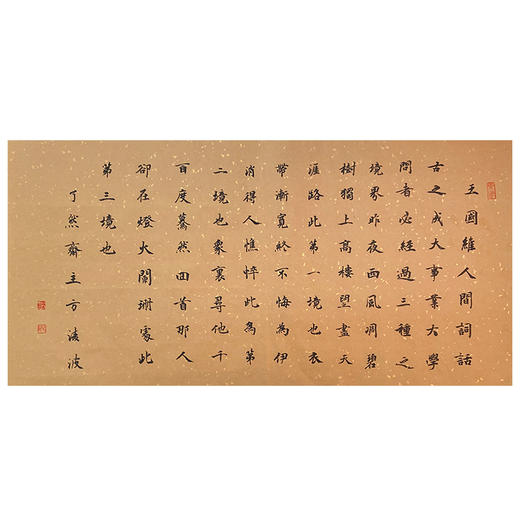 王國維人間詞話
古之成大事業大學
問者必經過三種之
境界昨夜西風凋碧
樹獨上高樓望盡天
涯路此第一境也衣
帶漸寬終不悔為伊
消得人憔悴此為第
二境也衆裏尋他千
百度驀然回首那人
卻在燈火闌珊處此
第三境也
了然齋主方波